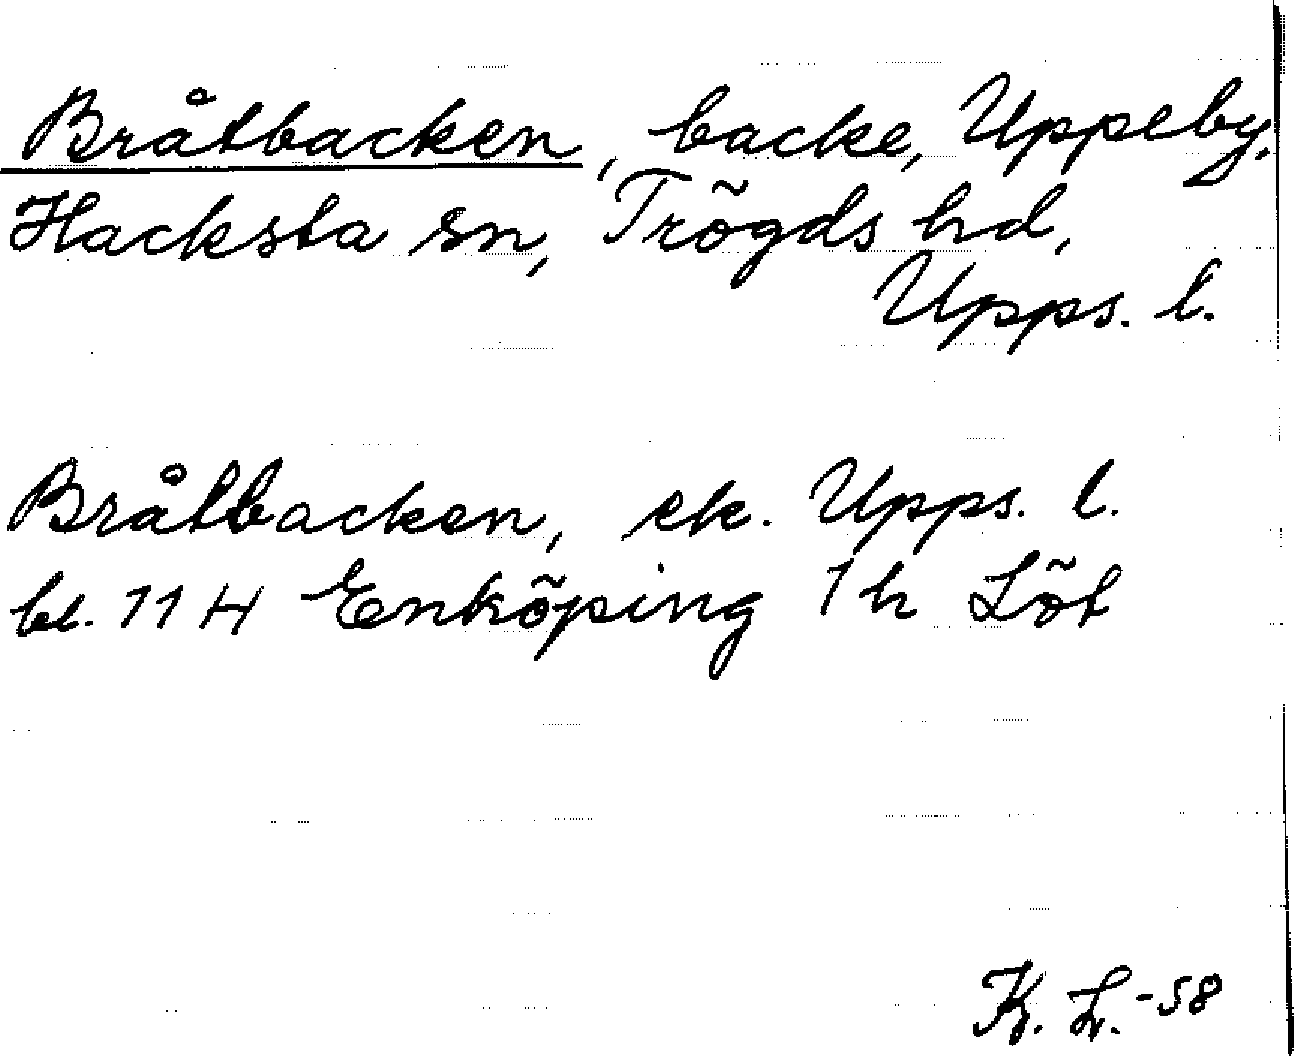 Bråtbacken, backe, Uppeby,
Hacksta sn, Trögds hd,
Upps. l.
Bråtbacken, ek. Upps. l.
bl. 11 H Enköping 1 h Löt
K. L. -58